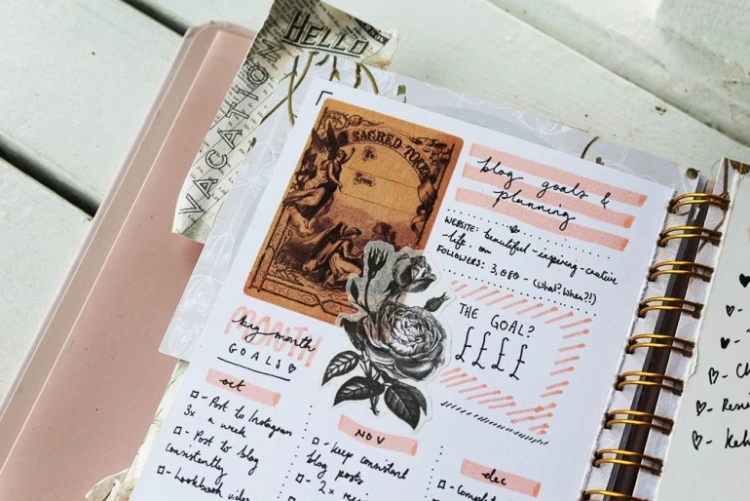 HELLO
VACATION
SACRED TOKEN
To
From
blog goals &
planning
WEBSITE: beautiful-inspiring-creative
-life.com
FOLLOWERS: 3,080 (What? When?!)
THE GOAL?
££££
MONTH
key month
GOALS
oct
- Post to Instagram
3x a week
- Post to blog
consistently
- Lookbook video
NOV
- Keep consistent
blog posts
- 2x
dec